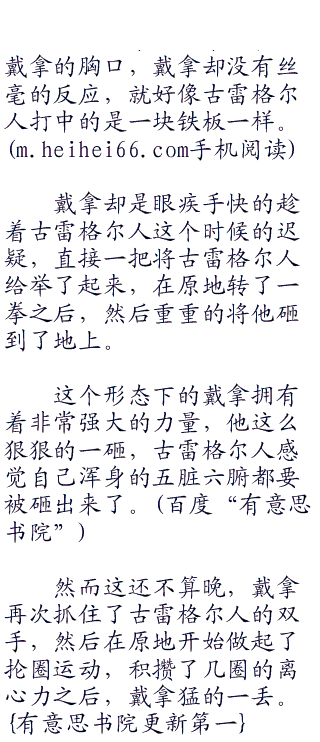 戴拿的胸口，戴拿却没有丝
毫的反应，就好像古雷格尔
人打中的是一块铁板一样。
(m.heihei66.com手机阅读)
戴拿却是眼疾手快的趁
着古雷格尔人这个时候的迟
疑，直接一把将古雷格尔人
给举了起来，在原地转了一
拳之后，然后重重的将他砸
到了地上。
这个形态下的戴拿拥有
着非常强大的力量，他这么
狠狠的一砸，古雷格尔人感
觉自己浑身的五脏六腑都要
被砸出来了。(百度“有意思
书院”)
然而这还不算晚，戴拿
再次抓住了古雷格尔人的双
手，然后在原地开始做起了
抡圈运动，积攒了几圈的离
心力之后，戴拿猛的一丢。
{有意思书院更新第一}